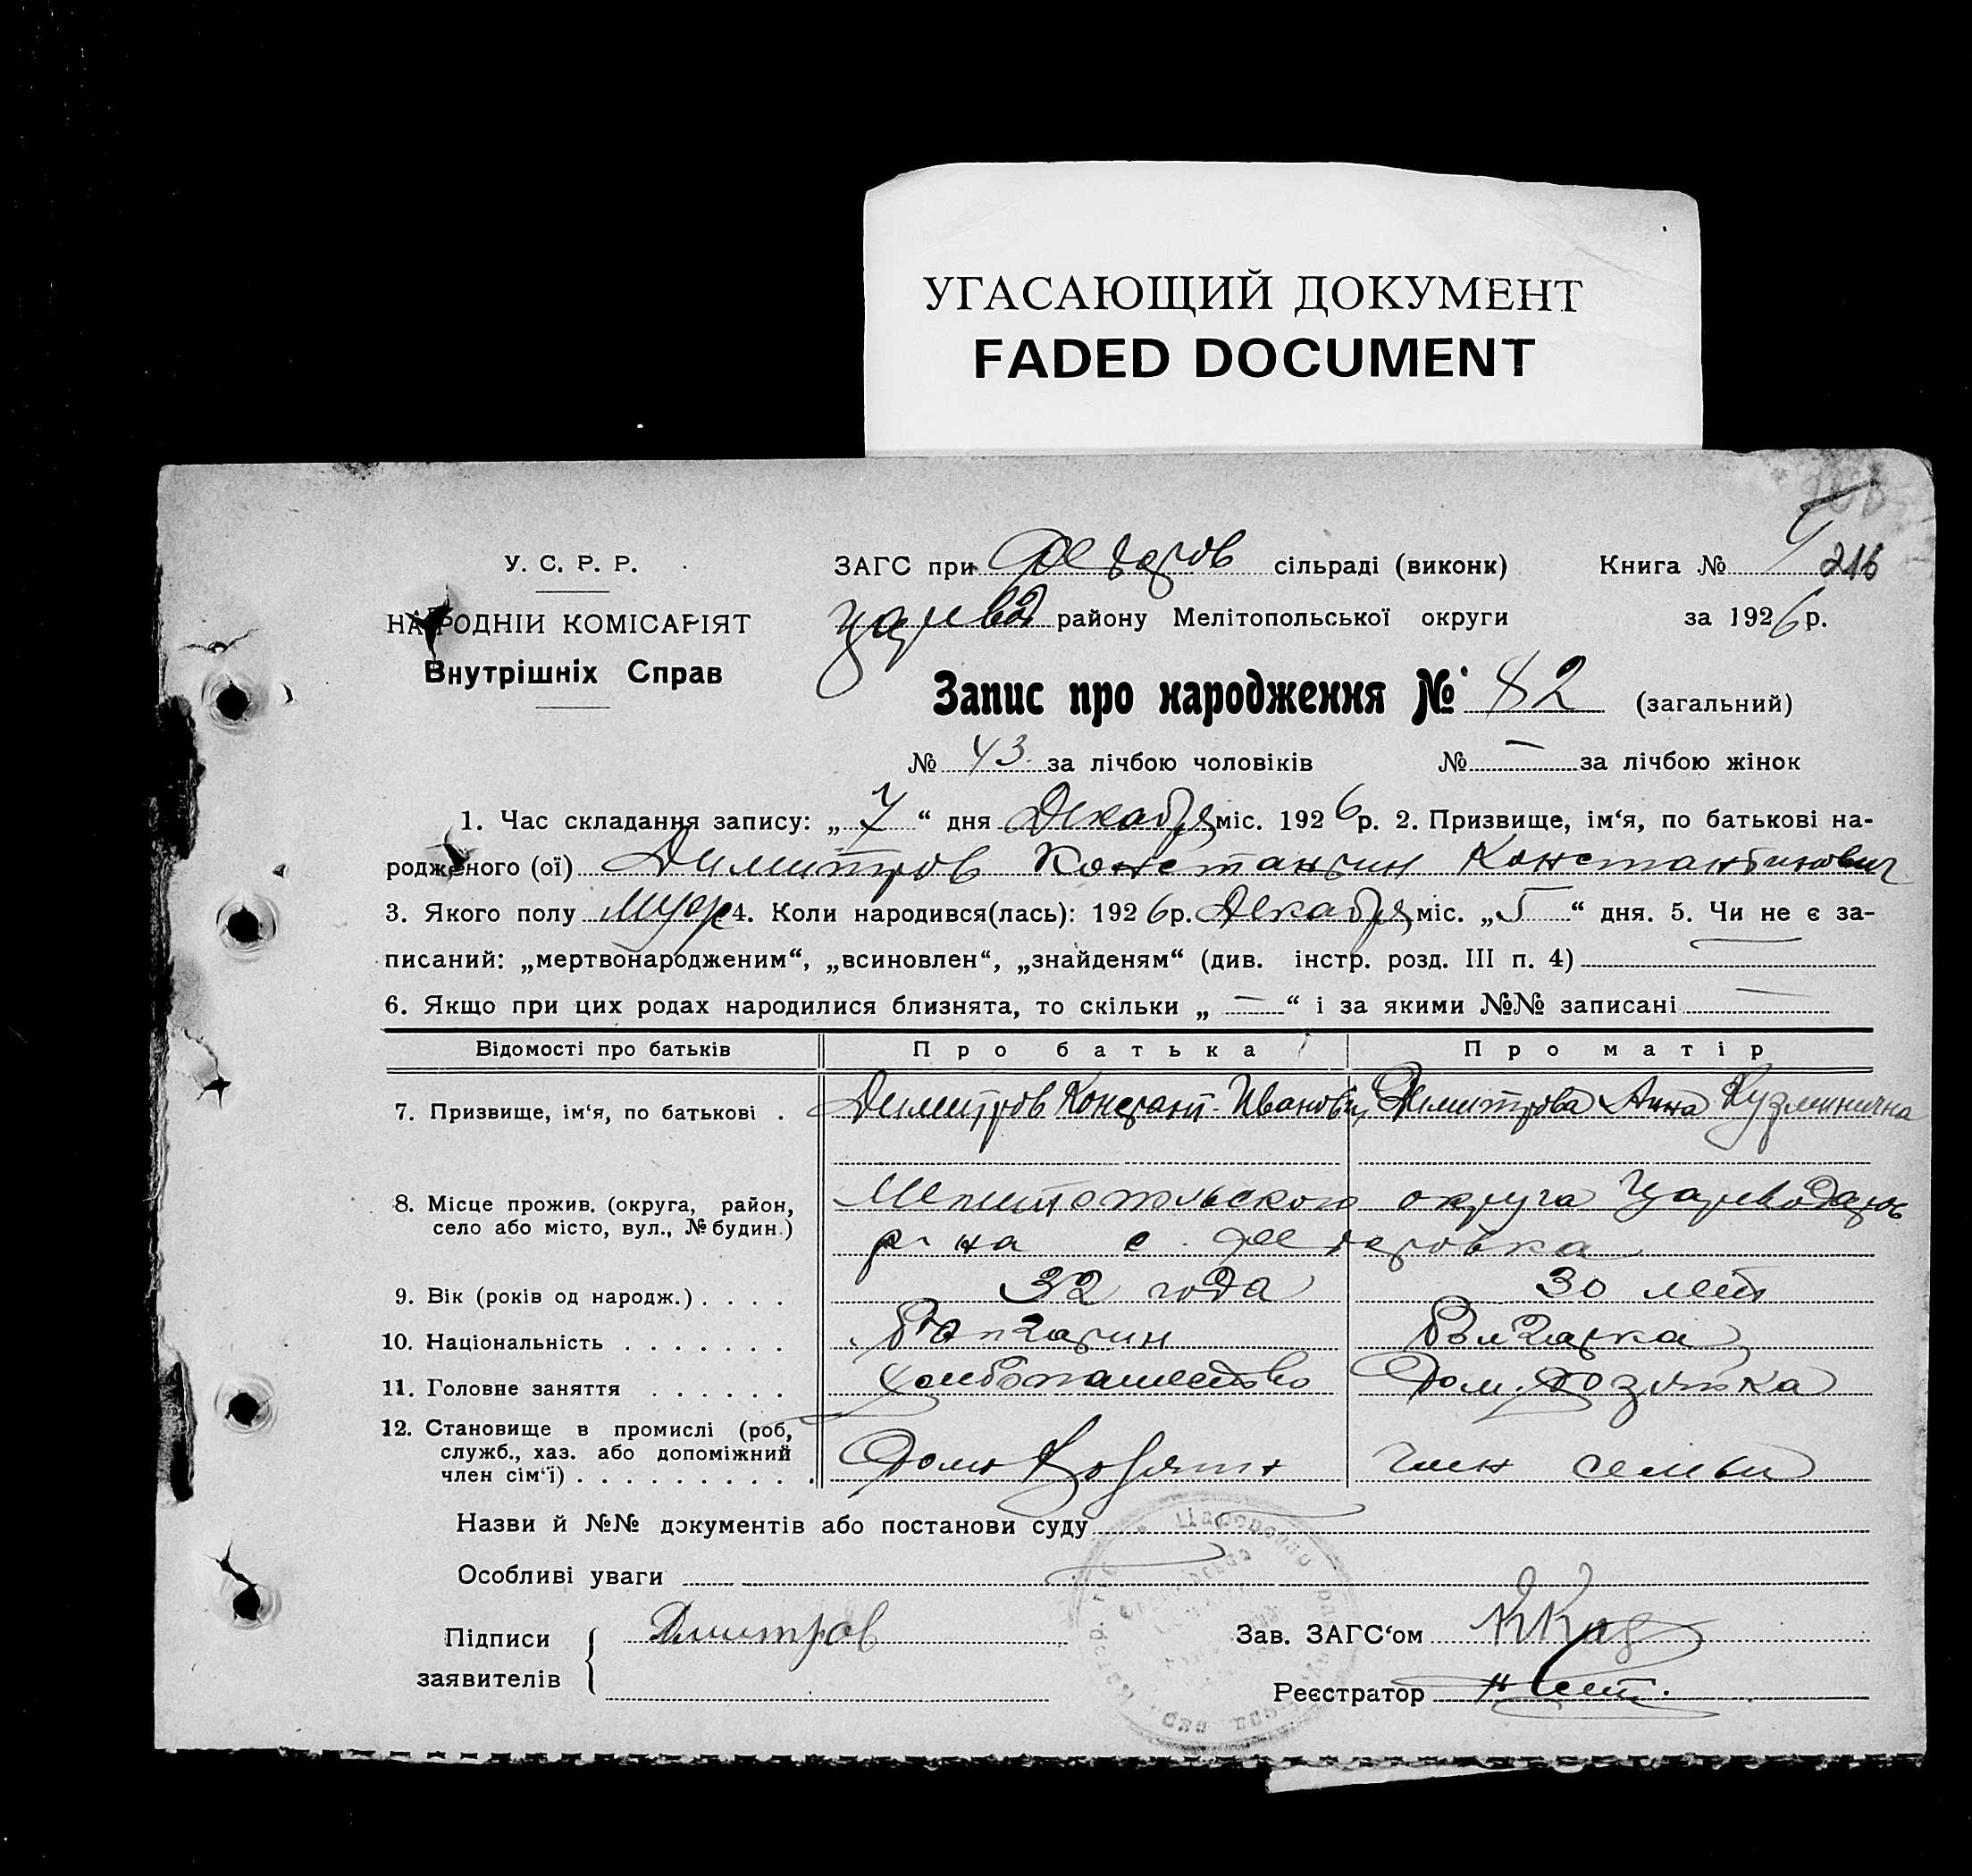 УГАСАЮЩИЙ ДОКУМЕНТ
FADED DOCUMENT
У. С. Р. Р.
НАРОДНІИ КОМІСАРІЯТ
Внутрішніх Справ
ЗАГС при Федоров сільраді (виконк) Книга № 216
Царевод району Мелітопольської округи за 1926 р.
Запис про народження № 82 (загальний)
№ 43 за лічбою чоловіків № — за лічбою жінок
1. Час складання запису: „ 7 “ дня Декабря міс. 1926 р. 2. Призвище, ім‘я, по батькові на-
родженого (ої) Димитров Константин Константинович
3. Якого полу муж 4. Коли народився(лась): 1926 р. Декабря міс. „ 5 “ дня. 5. Чи не є за-
писаний: „мертвонародженим“, „всиновлен“, „знайденям“ (див. інстр. розд. III п. 4) —
6. Якщо при цих родах народилися близнята, то скільки „ — “ і за якими №№ записані —
Відомості про батьків Про батька Про матір
7. Призвище, ім‘я, по батькові . Димитров Констант. Иванович Димитрова Анна Кузминична
8. Місце прожив. (округа, район,
село або місто, вул., № будин.)
Мелитопольского округа Цареводар
р-на с. Федоровка
9. Вік (років од народж.) . . . . 32 года 30 лет
10. Національність . . . . . . . Болгарин Болгарка
11. Головне заняття . . . . . . хлебопашество Дом. хозяйка
12. Становище в промислі (роб,
служб., хаз. або допоміжний
член сім‘ї) . . . . . . . . . .
член семьи
Назви й №№ документів або постанови суду
Особливі уваги
Підписи
заявителів
Дмитров
Зав. ЗАГС‘ом
Реєстратор